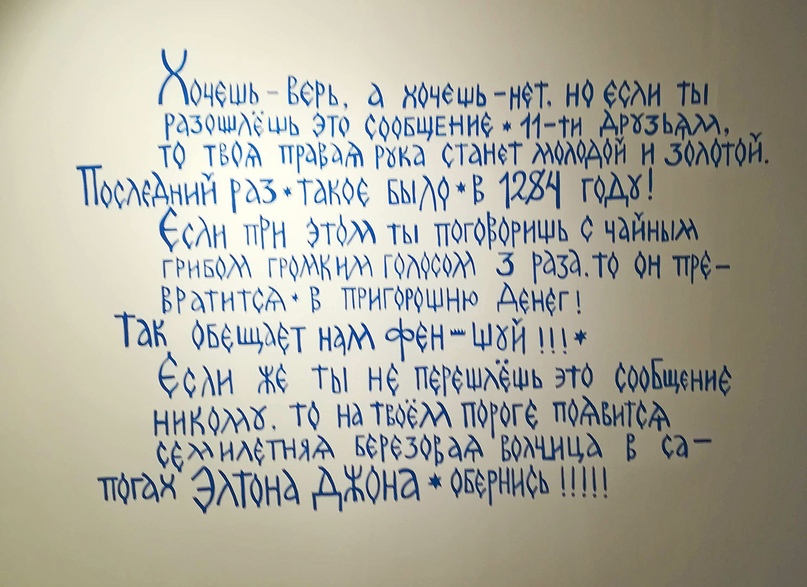 Хочешь - верь, а хочешь - нет. но если ты
разошлёшь это сообщение * 11-ти друзьям,
то твоя правая рука станет молодой и золотой.
Последний раз * такое было * в 1284 году!
Если при этом ты поговоришь с чайным
грибом громким голосом 3 раза. то он пре-
вратится * в пригоршню денег!
Так обещает нам фен-шуй !!! *
Если же ты не перешлёшь это сообщение
никому. то на твоём пороге появится
семилетняя березовая волчица в са-
погах Элтона Джона * обернись !!!!!